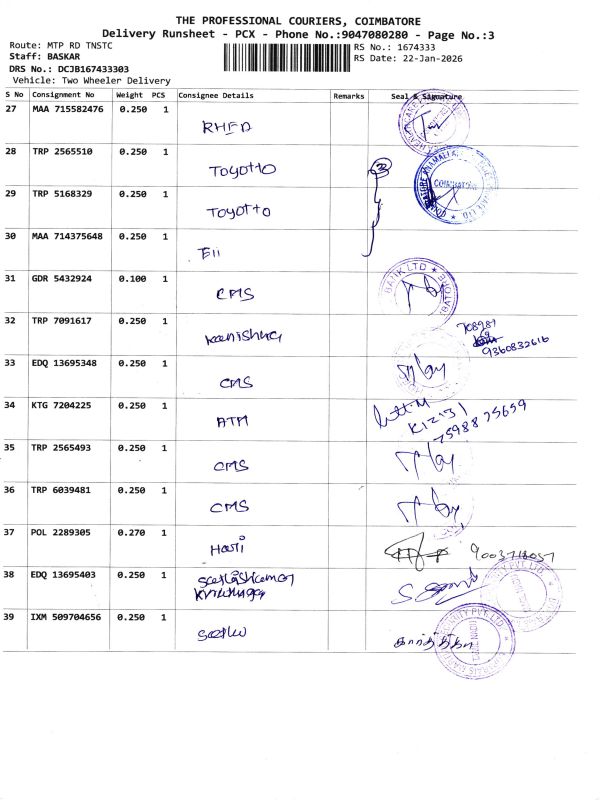 THE PROFESSIONAL COURIERS, COIMBATORE
Delivery Runsheet - PCX - Phone No.:9047080280 - Page No.:3
Route: MTP RD TNSTC
RS No.: 1674333
Staff: BASKAR
RS Date: 22-Jan-2026
DRS No.: DCJB167433303
Vehicle: Two Wheeler Delivery
S No Consignment No Weight PCS Consignee Details Remarks Seal & Signature
27 MAA 715582476 0.250 1
28 TRP 2565510 0.250 1 Toyotto
29 TRP 5168329 0.250 1 Toyotto
30 MAA 714375648 0.250 1
31 GDR 5432924 0.100 1 CMS
BANK LTD
32 TRP 7091617 0.250 1
9360832616
33 EDQ 13695348 0.250 1 CMS
34 KTG 7204225 0.250 1 ATM
7598875659
35 TRP 2565493 0.250 1 CMS
36 TRP 6039481 0.250 1 CMS
37 POL 2289305 0.270 1 Hari
38 EDQ 13695403 0.250 1
39 IXM 509704656 0.250 1
கார்த்திகா